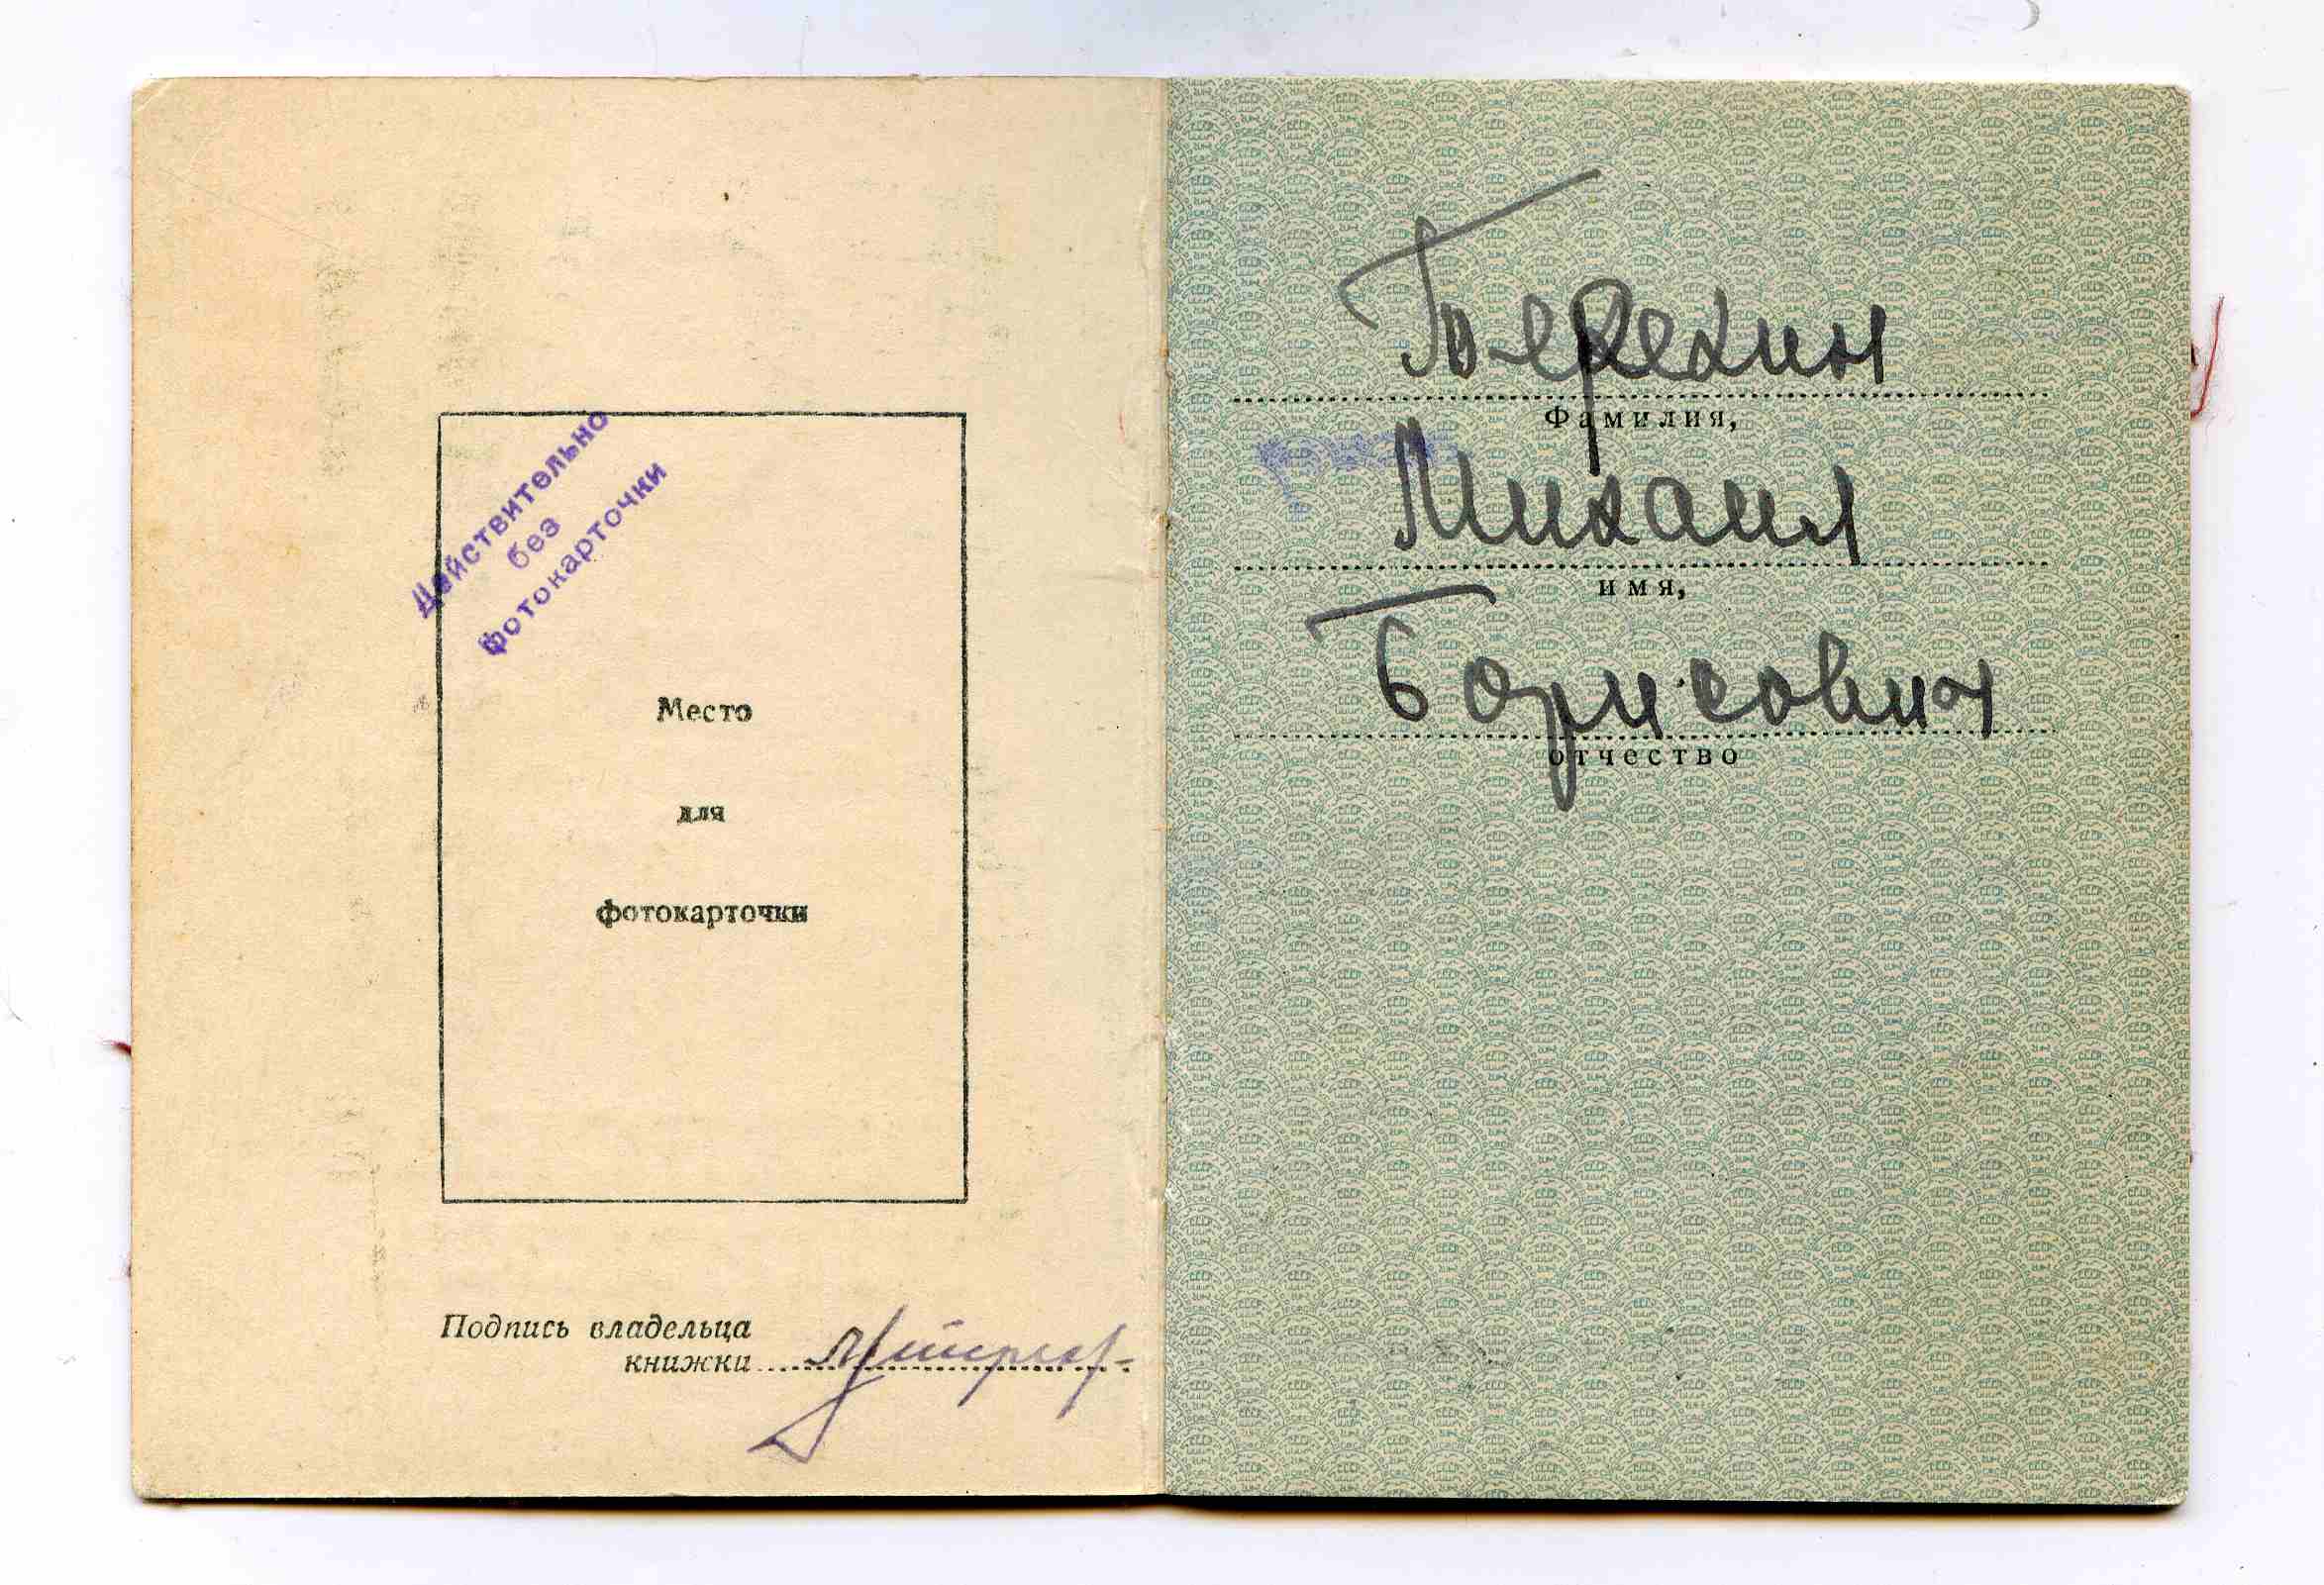 Действительно
без
фотокарточки
Место
для
фотокарточки
Подпись владельца
книжки
Терехин
Фамилия,
Михаил
имя,
Борисович
отчество